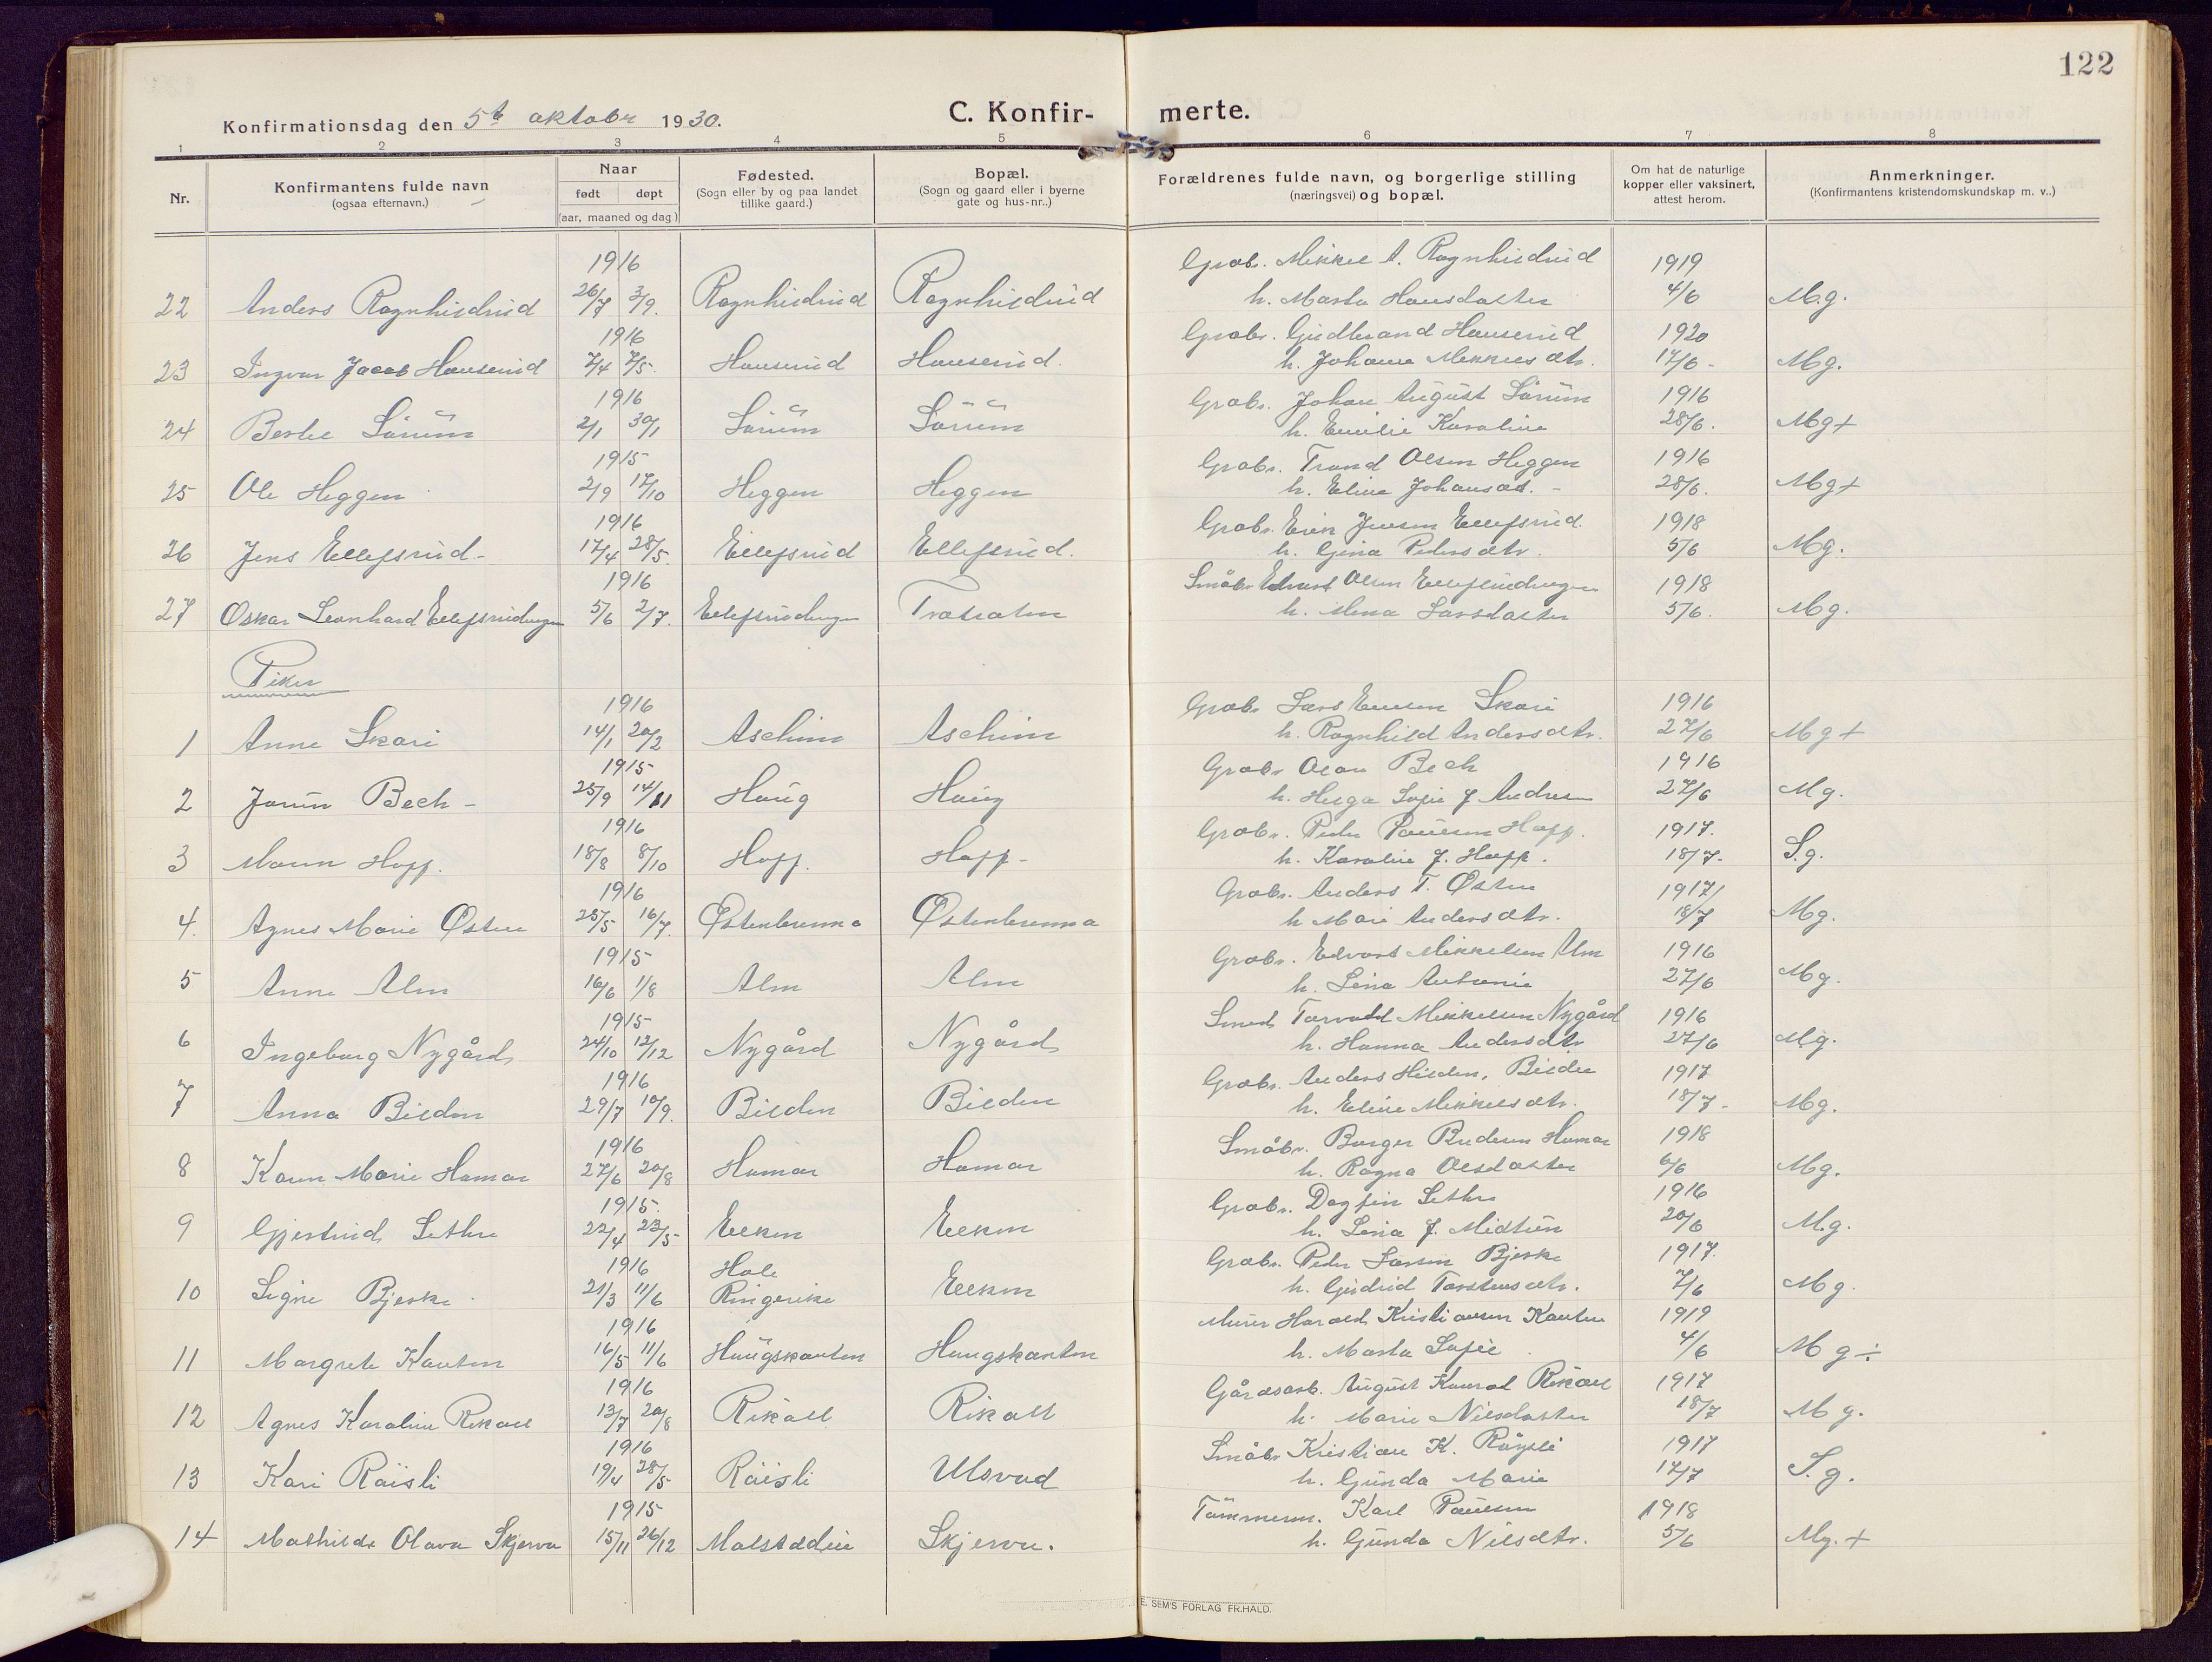 122
Konfirmationsdag den 5te oktobr 1930.
C. Konfir- merte.
1 2 3 4 5 6 7 8
Nr.
Konfirmantens fulde navn
(ogsaa efternavn.)
Naar
født døpt
(aar, maaned og dag)
Fødested.
(Sogn eller by og paa landet
tillike gaard.)
Bopæl.
(Sogn og gaard eller i byerne
gate og hus-nr..)
Forældrenes fulde navn, og borgerlige stilling
(næringsvei) og bopæl.
Om hat de naturlige
kopper eller vaksinert,
attest herom.
Anmerkninger.
(Konfirmantens kristendomskundskap m. v..)
1916 Grabr. Mikkel A. Ragnhildrud 1919
22 Anders Ragnhildrud 26/7 3/9. Ragnhildrud Ragnhildrud h. Marta Hansdatter 4/6 Mg.
1916 Grabr. Gudbrand Hanserud 1920
23 Ingvar Jacob Hanserud 7/4 7/5. Hanserud Hanserud. h. Johanne Mikkelsdtr. 17/6 - Mg.
1916 Grabr. Johan August Sørum 1916
24 Børke Sørum 2/1 30/1 Sørum Sørum h. Emilie Karoline 28/6. Mg+
1915 Grabr. Trond Olsen Heggen 1916
25 Ole Heggen 2/9 17/10 Heggen Heggen h. Eline Johansdt. - 28/6. Mg+
1916 Grabr. Erik Jensen Ellefsrud. 1918
26 Jens Ellefsrud - 17/4 28/5. Ellefsrud Ellefsrud. h. Gina Pedersdtr. 5/6 Mg.
1916 Småbr. Edvart Olsen Ellefsrudengen 1918
27 Oskar Leonhard Ellefsrudengen 5/6 2/7. Ellefsrudengen h. Mina Larsdatter 5/6. Mg.
Piker
1916 Grabr Lars Skari 1916
1 Anne Skari 14/1 20/2 Aschim Aschim h. Ragnhild Andersdtr. 27/6 Mg+
1915 Grabr Olav Bech 1916
2 Jorun Bech - 25/9 14/11 Haug Haug h. Helga Sofie f Andresen 27/6 Mg.
1916 Grabr. Peder Paulsen Hoff. 1917.
3 Maren Hoff. 18/8 8/10 Hoff. Hoff - h. Karoline f. Hoff. 18/7. S.g.
1916 Grabr. Anders T. Østen 1917
4. Agnes Marie Østen 25/5 16/7. Østenbrenna Østenbrenna h Mari Andersdtr. 18/7 Mg.
1915 Grabr. Edvart Mikkelsen Alm 1916
5 Anne Alm 16/6 1/8 Alm Alm h. Lina Antonie 27/6 Mg.
1915 Smed Torvald Mikkelsen Nygård 1916
6 Ingeborg Nygård 24/10 12/12 Nygård Nygård h. Hanna Andersdtr 27/6 Mg.
1916 Grabr. Anders Hilden, Bilden 1917
7 Anna Bilden 29/7 10/9. Bilden Bilden h. Eline Mikkelsdtr. 18/7 - Mg.
1916 Småbr. Borger Rudesen Hamar 1918
8 Karen Marie Hamar 27/6 20/8 Hamar Hamar h. Ragna Olsdatter 6/6 Mg.
1915. Grabr. Dagfin Lethe 1916
9 Gjertrud Lethe 22/4 23/5 Eeken Eeken h. Lina f. Midtun 20/6 Mg.
1916 Hole Grabr. Peder Larsen Bjerke 1917.
10 Signe Bjerke 21/3 11/6 Ringerike Eeken h. Gudrid Torstensdtr. 7/6 Mg.
1916 Murer Harald Kristiansen Kanten 1919
11 Margrete Kanten 16/5 11/6 Haugskanten Haugskanten h. Marta Sofie. 4/6 M g ÷
1916 Gårdsarb. August Konrad Rikoll 1917
12 Agnes Karoline Rikoll 13/7 20/8 Rikoll Rikoll h. Marie Nilsdatter 18/7 M g.
1916 Småbr Kristian K. Røisli 1917
13 Kari Røisli 19/4 28/5 Røisli Ulsvad h. Gunda Marie 17/7 S.g.
1915 Tømmerm. Karl Paulsen 1918
14 Mathilde Olava Skjerva 15/11 26/12 Skjerve. h. Gunda Nilsdtr. 5/6 Mg.+
E. SEM'S FORLAG FR.HALD.